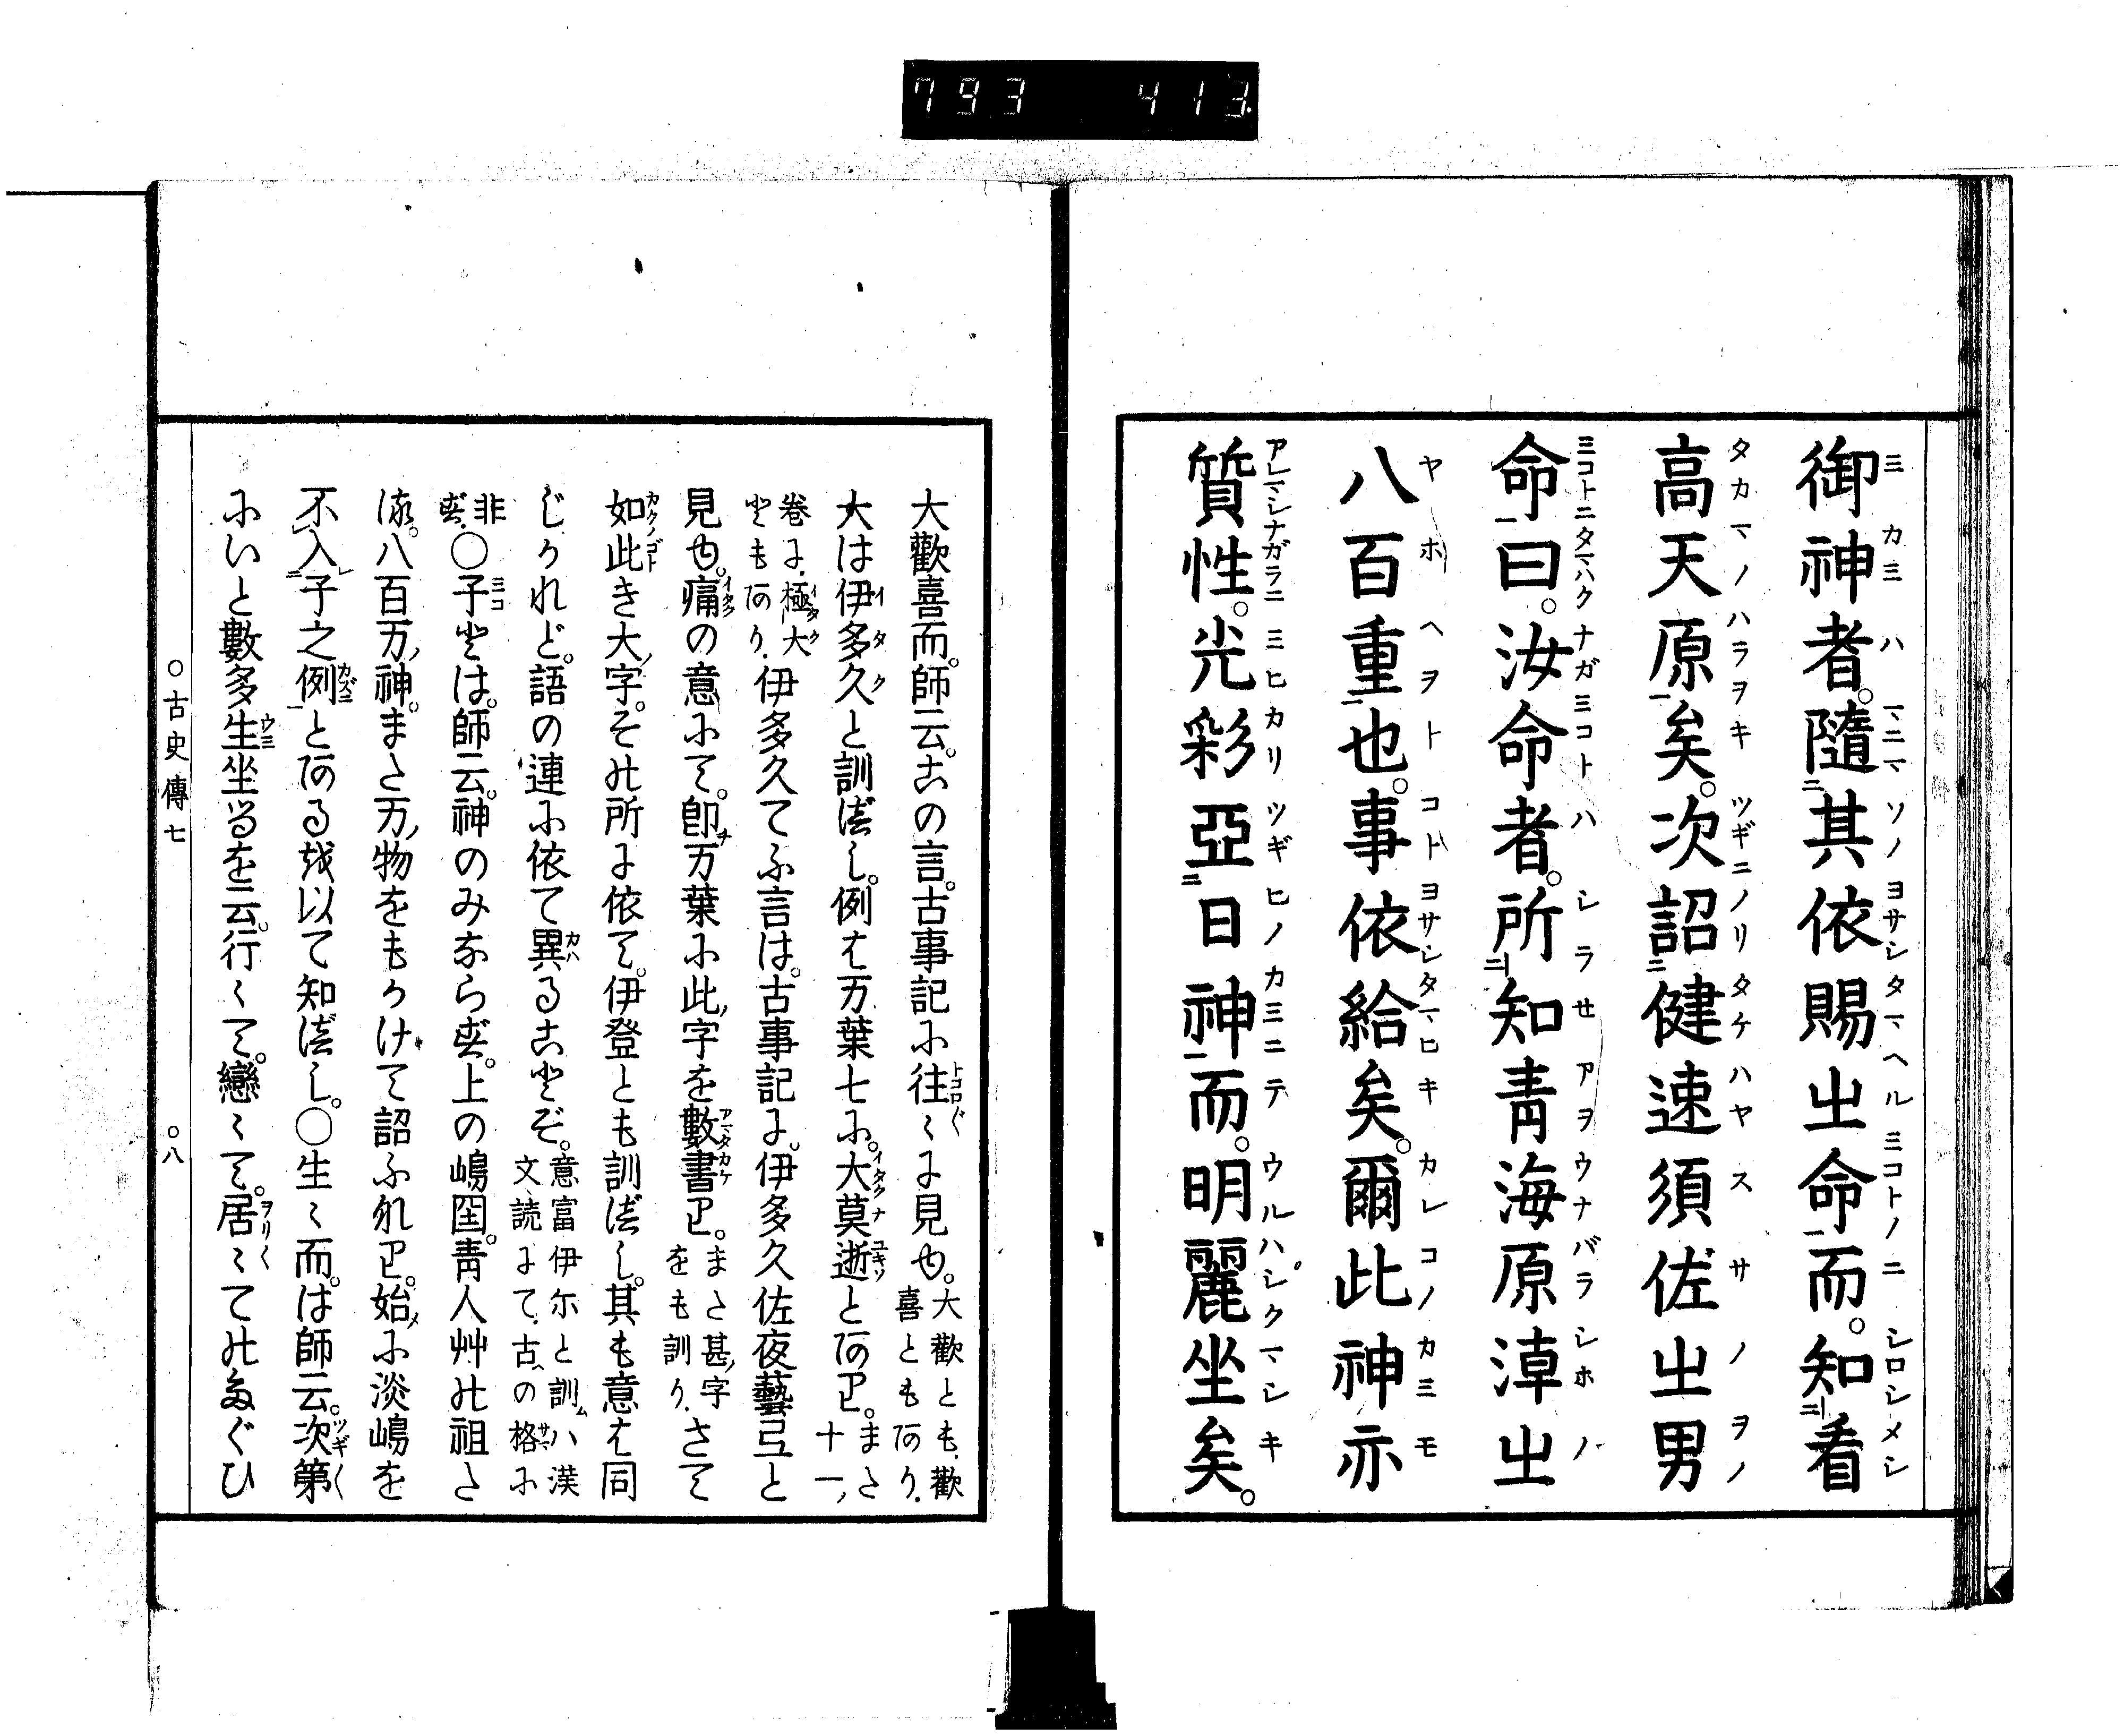 793 413
御神者。隨其依賜㞢命而。知看
高天原矣。次詔健速須佐㞢男
命曰。汝命者。所知靑海原潭㞢
八百重也。事依給矣。爾此神亦
質性。光彩亞日神而。明麗坐矣。
大歡喜而。師云。この言。古事記に往々に見ゆ。大歡とも、歡喜ともあり、
大は伊多久と訓べし。例は万葉七に。大莫逝とあり。また十一ノ
卷に、極大ともあり、伊多久てふ言は。古事記に。伊多久佐夜藝弖と
見ゆ。痛の意にて。卽万葉に此ノ字を數書り。また甚ノ字をも訓り、さて
如此き大ノ字。その所に依て。伊登とも訓べし。其も意は同
じかれど。語の連に依て異ることぞ。意富伊尓と訓ムハ漢文読にて、古ヘの格に
非ず、○子とは。師云。神のみならず。上の嶋国。靑人艸の祖た
る。八百万ノ神。また万ノ物をもかけて詔ふなり。始メに淡嶋を
不入子之例とあるを以て知べし。○生々而。は師云。次第
にいと數多生坐るを云。行々て。戀々て。居々てのたぐひ
○古史傳七　○八